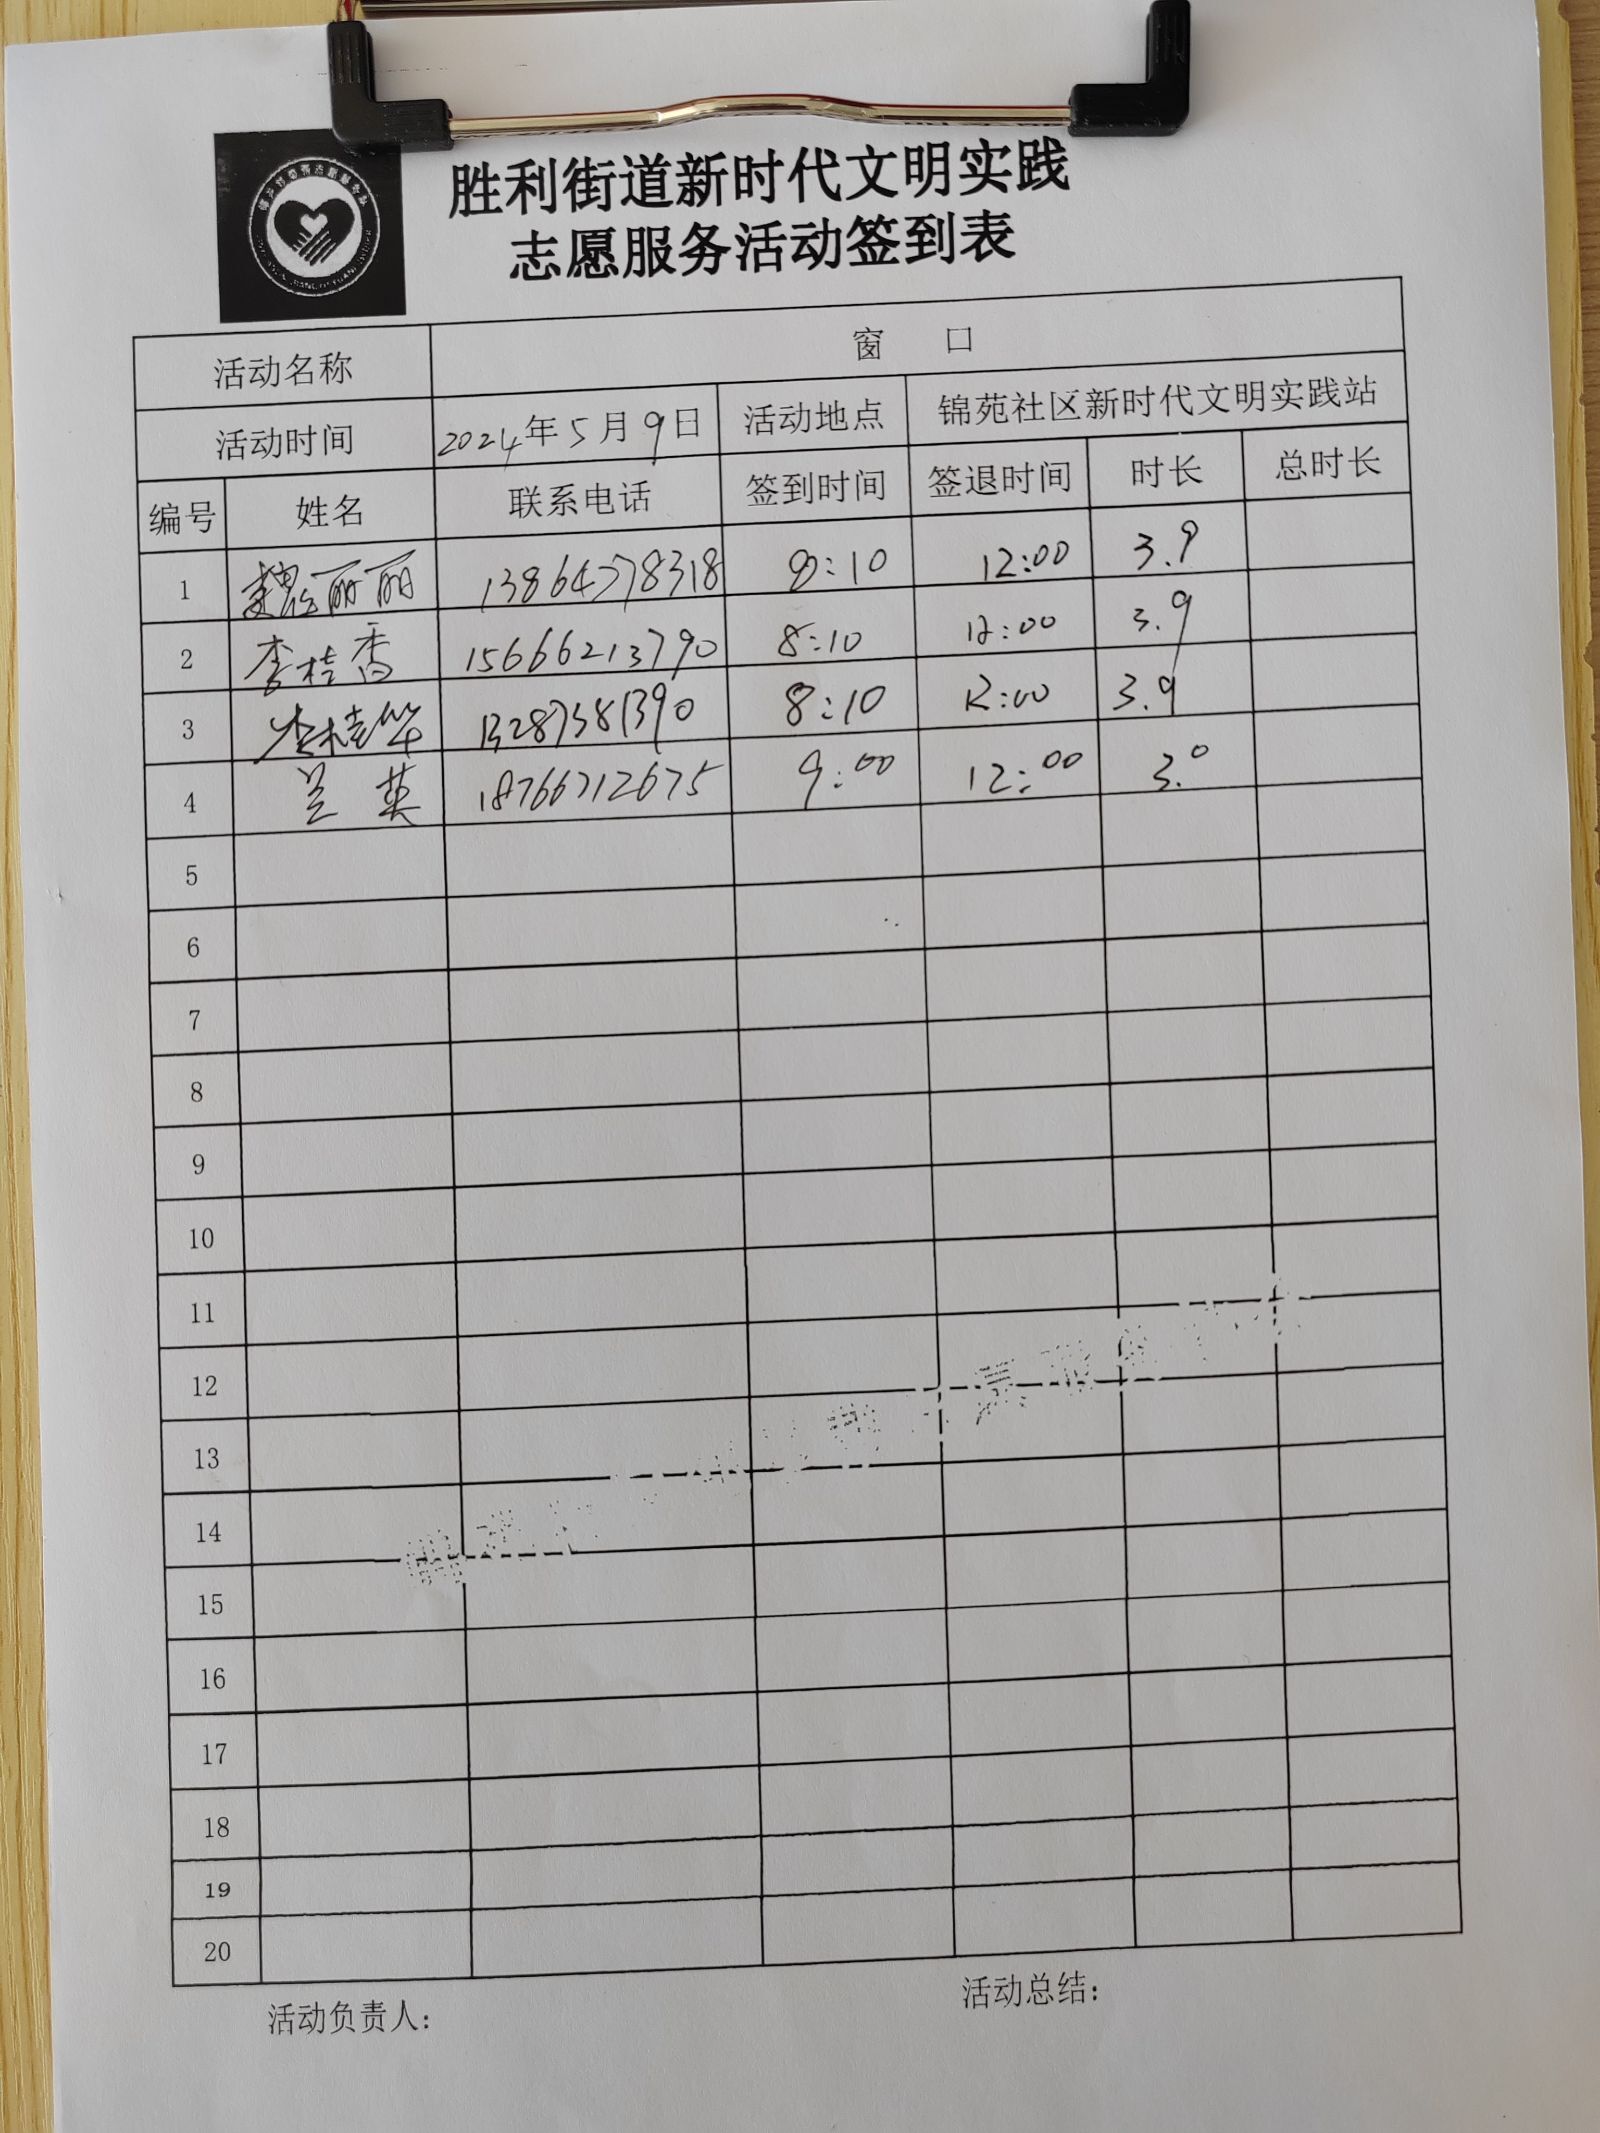 胜利街道新时代文明实践
志愿服务活动签到表
活动名称 窗 口
活动时间 2024年5月9日 活动地点 锦苑社区新时代文明实践站
编号 姓名 联系电话 签到时间 签退时间 时长 总时长
1 魏丽丽 13864778318 8:10 12:00 3.9
2 李桂香 15666213790 8:10 12:00 3.9
3 李桂华 13287381390 8:10 12:00 3.9
4 兰英 18766712675 9:00 12:00 3.0
5
6
7
8
9
10
11
12
13
14
15
16
17
18
19
20
活动负责人: 活动总结: